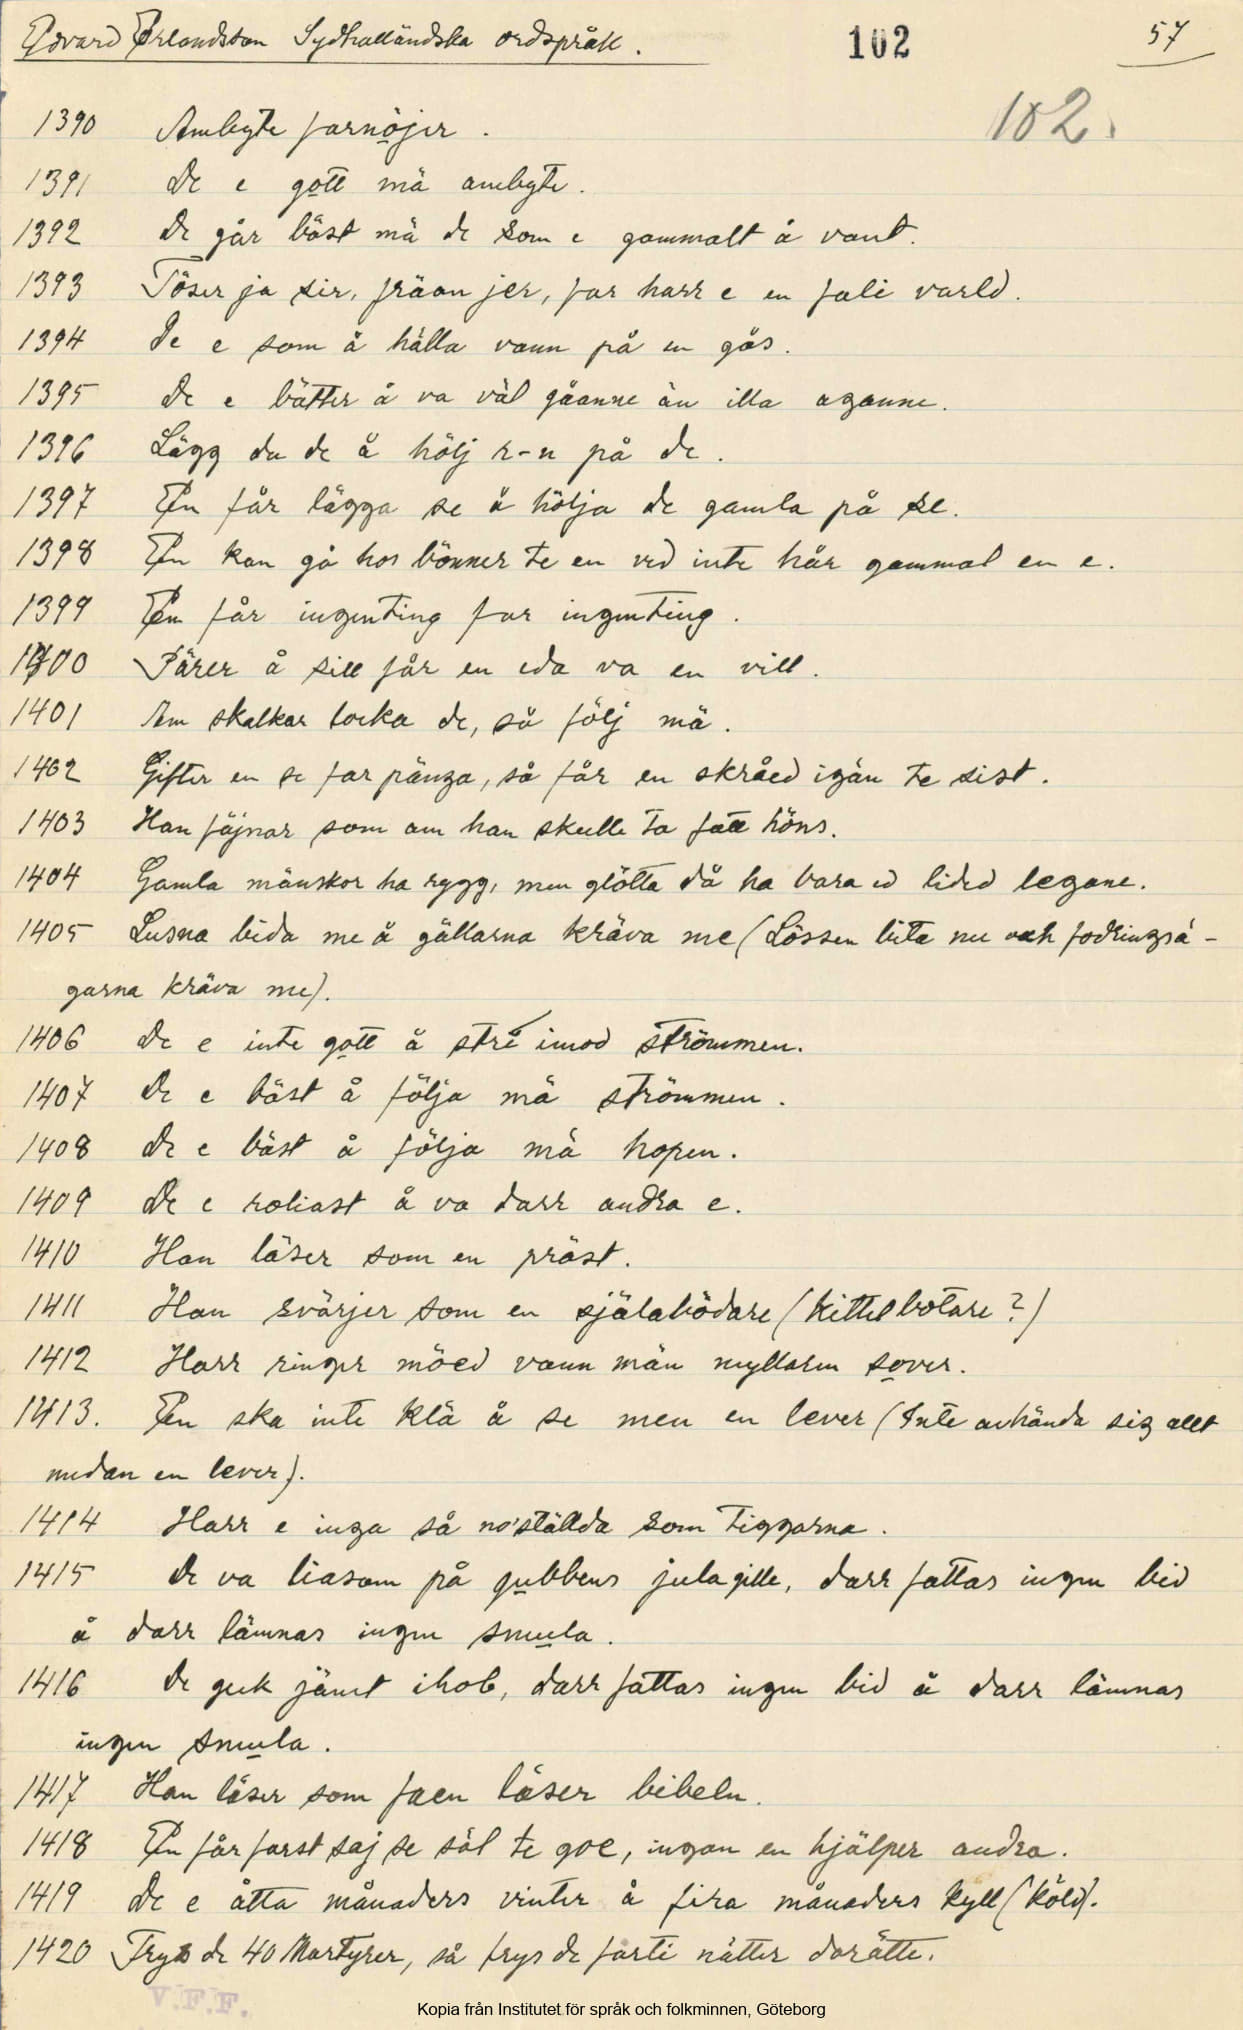 Edvard Erlandsson Sydhalländska ordspråk.
102
57
102.
1390 Ambyte farnöjer.
1391 De e gott mä ambyte.
1392 De går bäst mä de som e gammalt å vant.
1393 Töser ja sir, fräan jer, far harr e en fali varld.
1394 De e som å hälla vann på en gås.
1395 De e bätter å va väl gåanne än illa aganne.
1396 Lägg du de å hölj r-n på de.
1397 En får lägga se å hölja de gamla på se.
1398 En kan gå hos bönner te en ved inte hår gammal en e.
1399 En får ingenting far ingenting.
1400 Pärer å sill får en eda va en vill.
1401 Am skalkar locka de, så följ mä.
1402 Gifter en se far pänga, så får en skråed igän te sist.
1403 Han fäjnar som am han skulle ta fatt höns.
1404 Gamla mänskor ha rygg, men glötta då ha bara ed lided legane.
1405 Lusna bida me å gällarna kräva me (Lössen bita me och fodringsä-
garna kräva me).
1406 De e inte gott å stre imod strömmen.
1407 De e bäst å följa mä strömmen.
1408 De e bäst å följa mä hopen.
1409 De e roliast å va darr andra e.
1410 Han läser som en präst.
1411 Han svärjer som en själabödare (kittelbotare?)
1412 Harr ringer möed vann män myllaren sover.
1413. En ska inte klä å se men en lever (Inte avhända sig allt
medan en lever).
1414 Harr e inga så no'ställda som tiggarna.
1415 De va liasom på gubbens julagille, darr fattas ingen bid
å darr lämnas ingen smula.
1416 De gick jämt ihob, darr fattas ingen bid å darr lämnas
ingen smula.
1417 Han läser som faen läser bibeln.
1418 En får farst saj se säl te goe, ingan en hjälper andra.
1419 De e åtta månaders vinter å fira månaders kyll (köld).
1420 Frys de 40 Martyrer, så frys de farti nätter darätte.
V.F.F.
Kopia från Institutet för språk och folkminnen, Göteborg